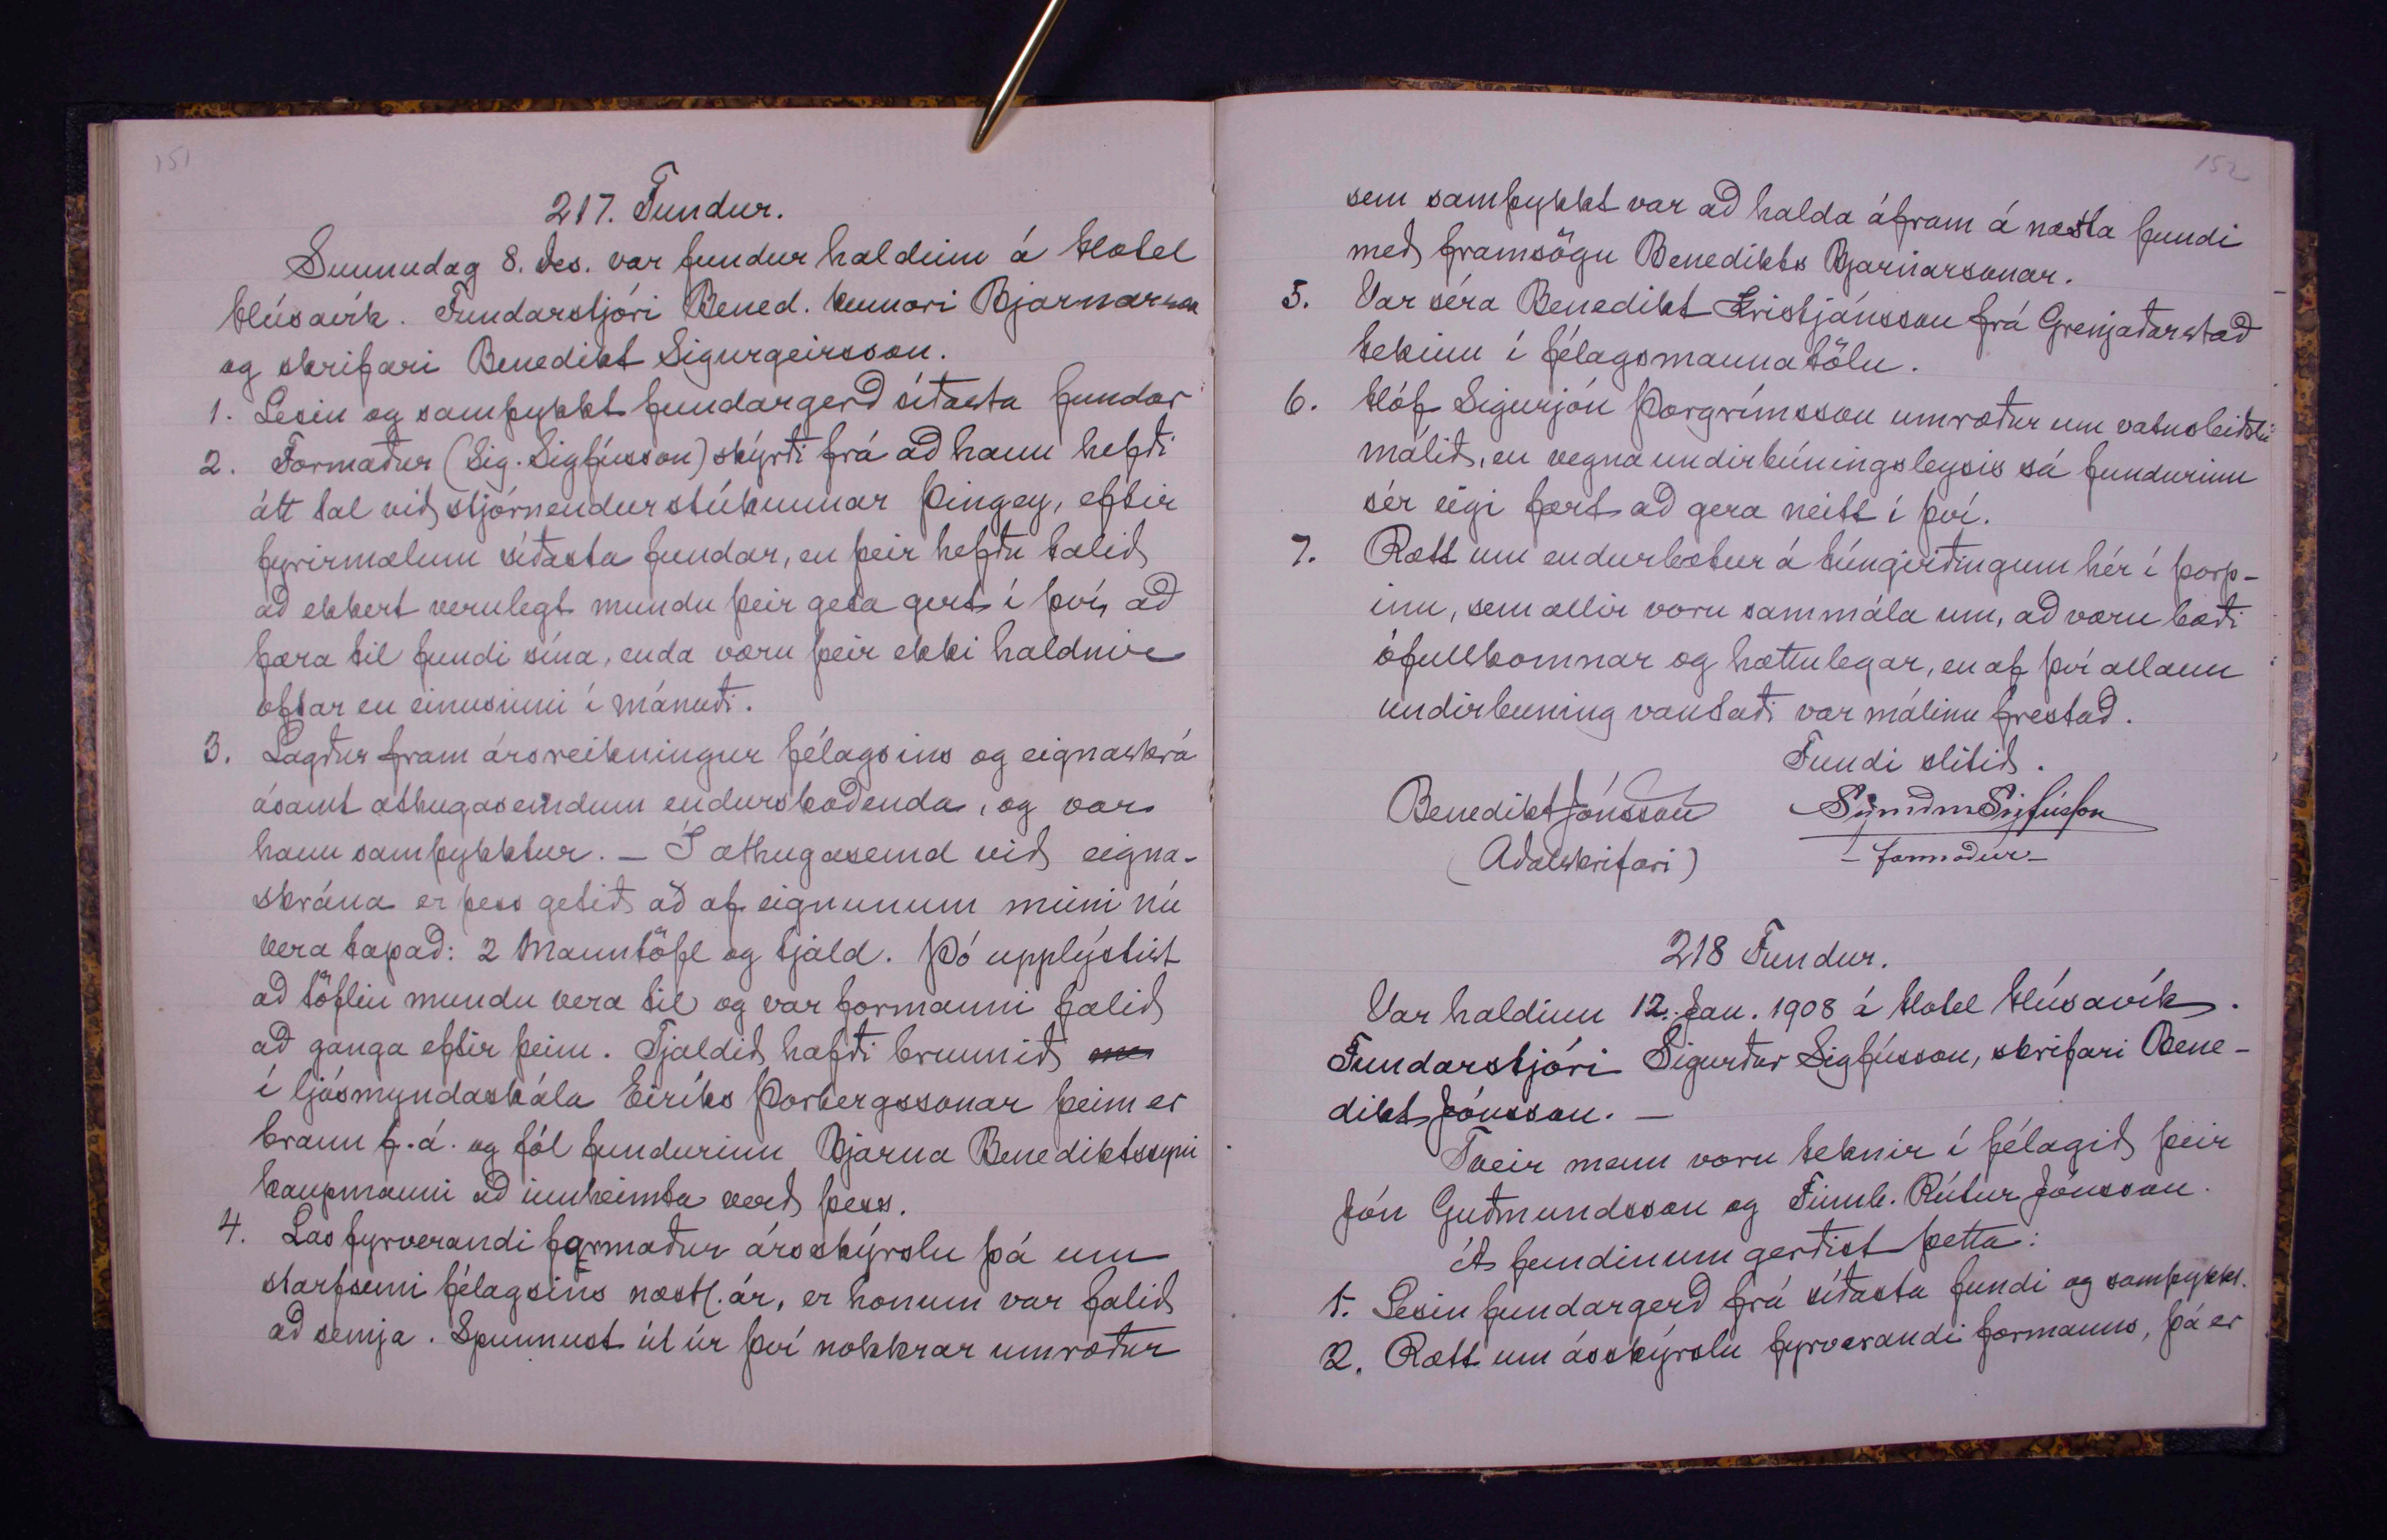 151
217. Fundur.
Sunnudag 8. des. var fundur haldinn á Hotel
Húsavík. Fundarstjóri Bened. kennari Bjarnarson
og skrifari Benedikt Sigurgeirsson.
1. Lesin og samþykkt fundargerð síðasta fundar
2. Formaður (Sig. Sigfússon) skýrði frá að hann hefði
átt tal við stjórnendur stúkunnar Þingey, eftir
fyrirmælum síðasta fundar, en þeir hefðu talið
að ekkert verulegt mundu þeir geta gert í því, að
færa til fundi sína, enda væru þeir ekki haldnir
oftar en einusinni í mánuði.
3. Lagður fram ársreikningur félagsins og eignaskrá
ásamt athugasemdum endurskoðenda, og var
hann samþykktur. – Í athugasemd við eigna-
skrána er þess getið að af eignunum muni nú
vera tapað: 2 Manntöfl og tjald. Þó upplýstist
að töflin mundu vera til og var formanni falið
að ganga eftir þeim. Tjaldið hafði brunnið
í ljósmyndaskála Eiríks Þorbergssonar þeim er
brann f. á. og fól fundurinn Bjarna Benediktssyni
kaupmanni að innheimta verð þess.
4. Las fyrverandi formaður ársskýrslu þá um
starfsemi félagsins næstl. ár, er honum var falið
að semja. Spunnust út úr því nokkrar umræður
152
sem samþykkt var að halda áfram á næsta fundi
með framsögu Benedikts Bjarnarsonar.
5. Var séra Benedikt Kristjánsson frá Grenjaðarstað
tekinn í félagsmannatölu.
6. Hóf Sigurjón Þorgrímsson umræður um vatnsleiðslu
málið, en vegna undirbúningsleysis sá fundurinn
sér eigi fært að gera neitt í því.
7. Rætt um endurbætur á túngirðingum hér í þorp-
inu, sem allir voru sammála um, að væru bæði
ófullkomnar og hættulegar, en af því allann
undirbuning vantaði var málinu frestað.
Fundi slitið.
Benedikt Jónsson Sigurður Sigfússon
(Aðalskrifari) – formaður –
218 Fundur.
Var haldinn 12. Jan. 1908 á Hotel Húsavík.
Fundarstjóri Sigurður Sigfússon, skrifari Bene-
dikt Jónsson. –
Tveir menn voru teknir í félagið þeir
Jón Guðmundsson og Finnb. Rútur Jónsson.
Á fundinum gerðist þetta:
1. Lesin fundargerð frá síðasta fundi og samþykkt.
2. Rætt um ásskýrslu fyrverandi formanns, þá er